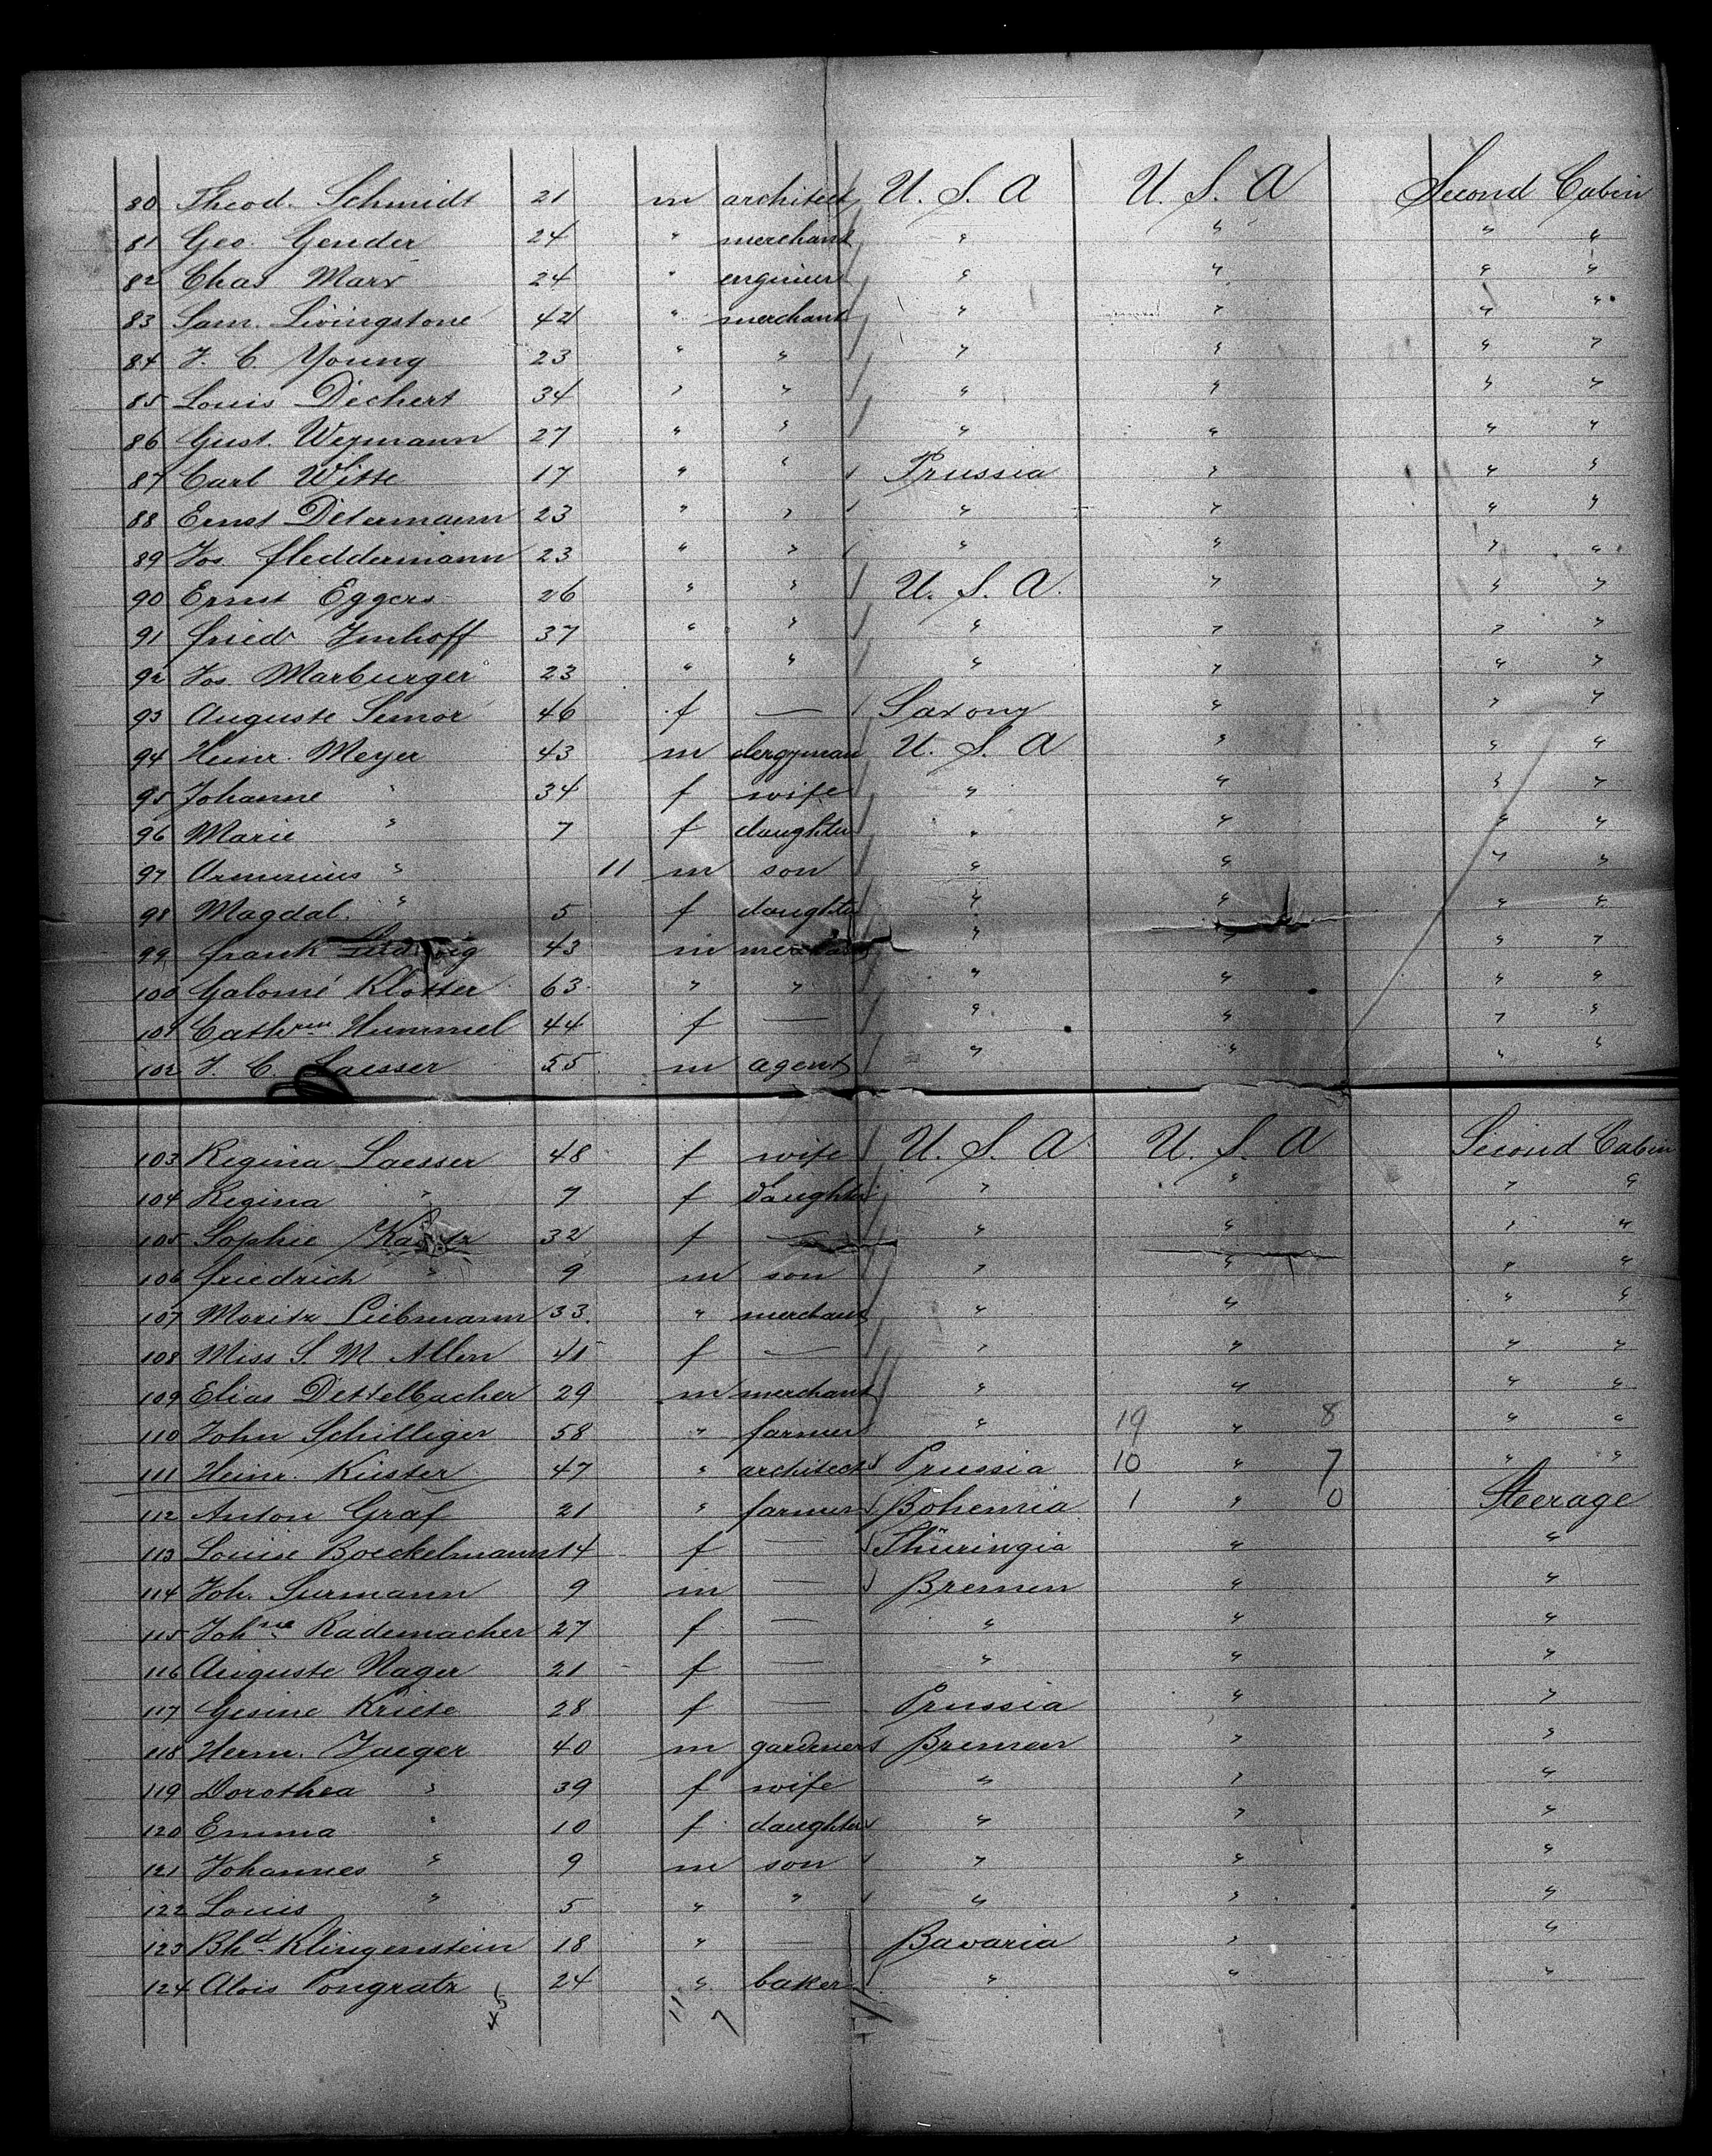 80 Theod. Schmidt 21 m architect U. S. A U. S. A Second Cabin
81 Geo. Gender 24 " merchant " " " "
82 Chas Marx 24 " engineer " " " "
83 Sam. Livingstone 42 " merchant " " " "
84 J. C. Young 23 " " " " " "
85 Louis Dechert 34 " " " " " "
86 Gust. Weymann 27 " " " " " "
87 Carl Witte 17 " " Prussia " " "
88 Ernst Determann 23 " " " " " "
89 Jos. Fleddermann 23 " " " " " "
90 Ernst Eggers 26 " " U. S. A. " " "
91 Fried. Imhoff 37 " " " " " "
92 Jos. Marburger 23 " " " " " "
93 Auguste 46 f — Saxony " " "
94 Heinr. Meyer 43 m clergyman U. S. A " " "
95 Johanne " 34 f wife " " " "
96 Marie " 7 f daughter " " " "
97 Armenius " 11 m son " " " "
98 Magdal. " 5 f daughter " " " "
99 Frank Ludwig 43 m merchant " " " "
100 Salomé Klotter 63 " " " " " "
101 Cathrin Hummel 44 f — " " " "
102 J. C. Laesser 55 m agent " " " "
103 Regina Laesser 48 f wife U. S. A U. S. A Second Cabin
104 Regina " 7 f daughter " " " "
105 Sophie 32 f — " " " "
106 Friedrich " 9 m son " " " "
107 Moritz Liebmann 33 " merchant " " " "
108 Miss S. M Allen 41 f — " " " "
109 Elias Dettelbacher 29 m merchant " " " "
110 John Schilliger 58 " farmer " 19 " 8 " "
111 Heinr. Küster 47 " architect Prussia 10 " 7 " "
112 Anton Graf 21 " farmer Bohemia 1 " 0 Steerage
113 Louise Boeckelmann 14 f — Thüringia " "
114 Joh. Surmann 9 m — Bremen " "
115 Johne Rademacher 27 f — " " "
116 Auguste Nager 21 f — " " "
117 Gesine Kriete 28 f — Prussia " "
118 Herm. Jaeger 40 m gardener Bremen " "
119 Dorothea " 39 f wife " " "
120 Emma " 10 f daughter " " "
121 Johannes " 9 m son " " "
122 Louis " 5 " " " " "
123 Bhd Klingenstein 18 " — Bavaria " "
124 Alois Pongratz 24 " baker " " "
11 7